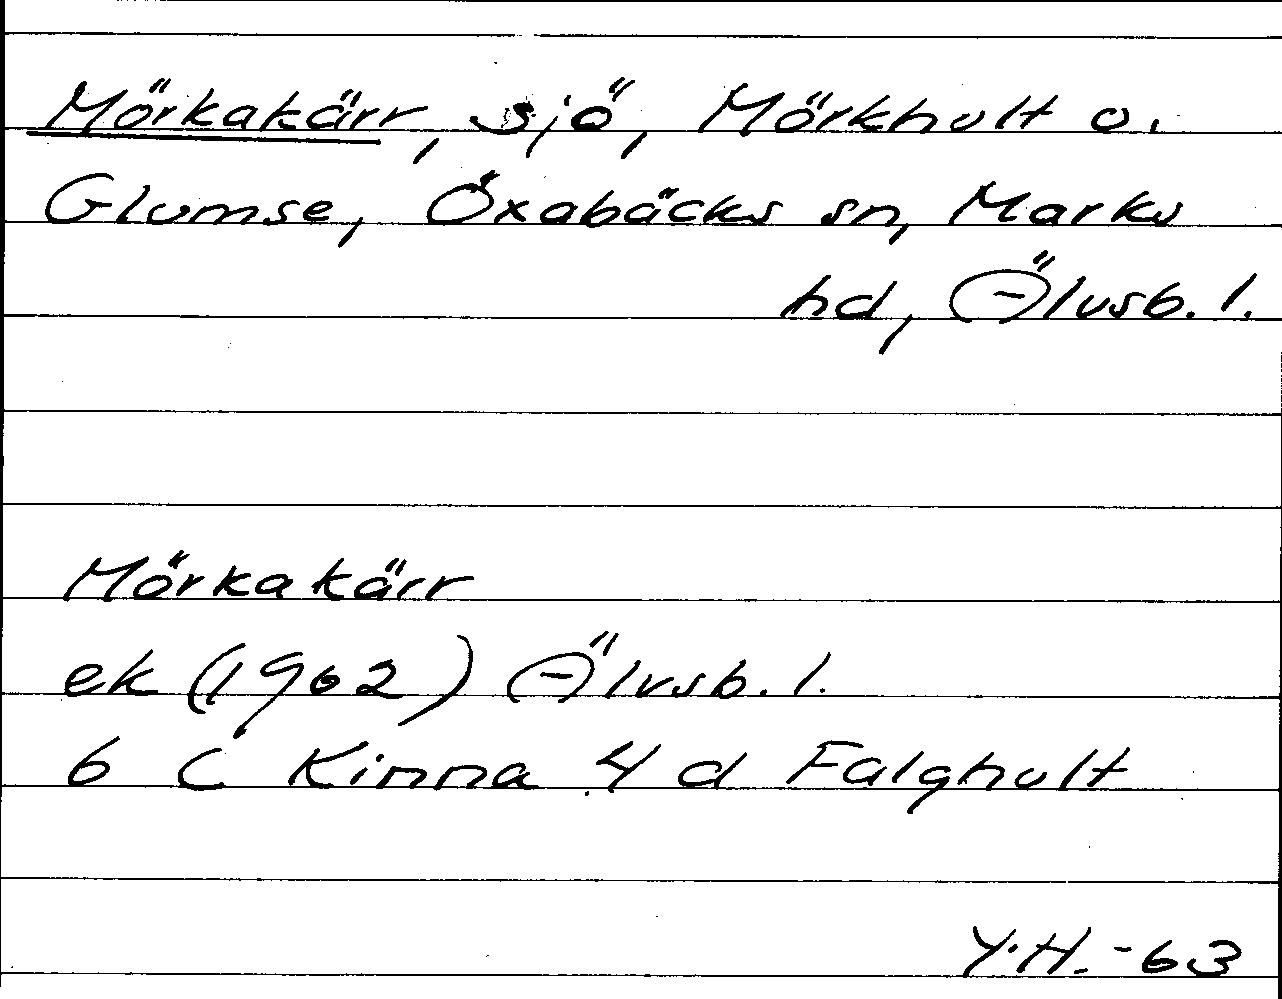 Mörkakärr, sjö, Mörkhult o.
Glumse, Öxabäcks sn, Marks
hd, Älvsb. l.
Mörkakärr
ek (1962) Älvsb. l.
6 C Kinna 4 d Falghult
Y.H. -63